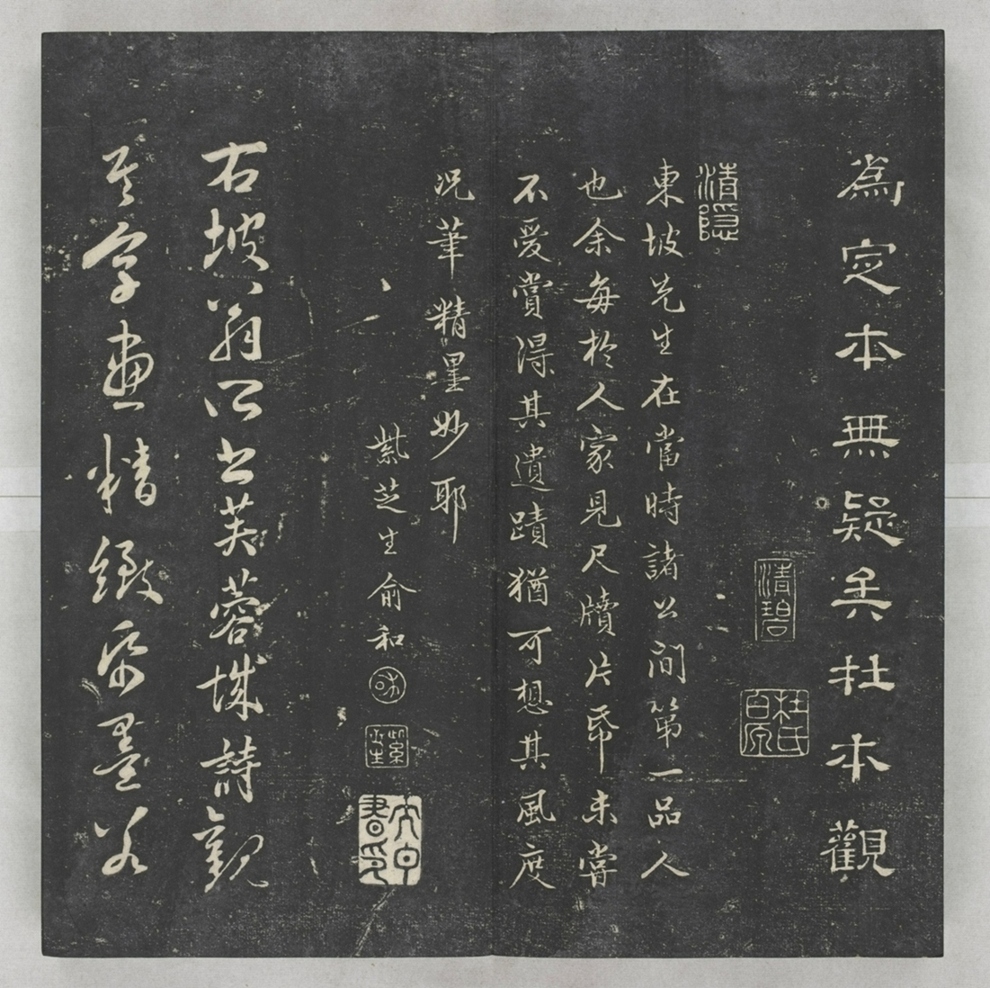 為定本無疑矣杜本觀
清碧
杜氏
清隱
東坡先生在當時諸公間第一品人
也余每於人家見尺牘片帋未嘗
不愛賞得其遺蹟猶可想其風度
況筆精墨妙耶
紫芝生俞和
和
紫芝生
右坡翁所書芙蓉城詩觀
其字畫精緻紙墨如